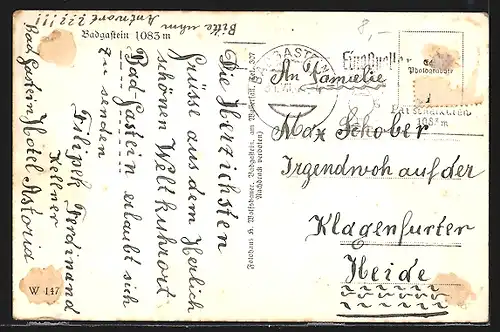 Badgastein 1083 m
Bitte um
Antwort ???!!!
Die Herzichsten
Grüsse aus dem Herlich
schönen Weltkuhrort
Bad Gastein erlaubt sich
zu senden
Filipek Ferdinand
Kellner
Bad Gastein Hotel Astoria
W 147
Fotohaus H. Wolfsbauer, Badgastein, am Wasserfall, Tel. 317
Nachdruck verboten)
8,-
GASTEIN
Photographie
1083 m
An Familie
Max Schober
Irgendwoh auf der
Klagenfurter
Heide